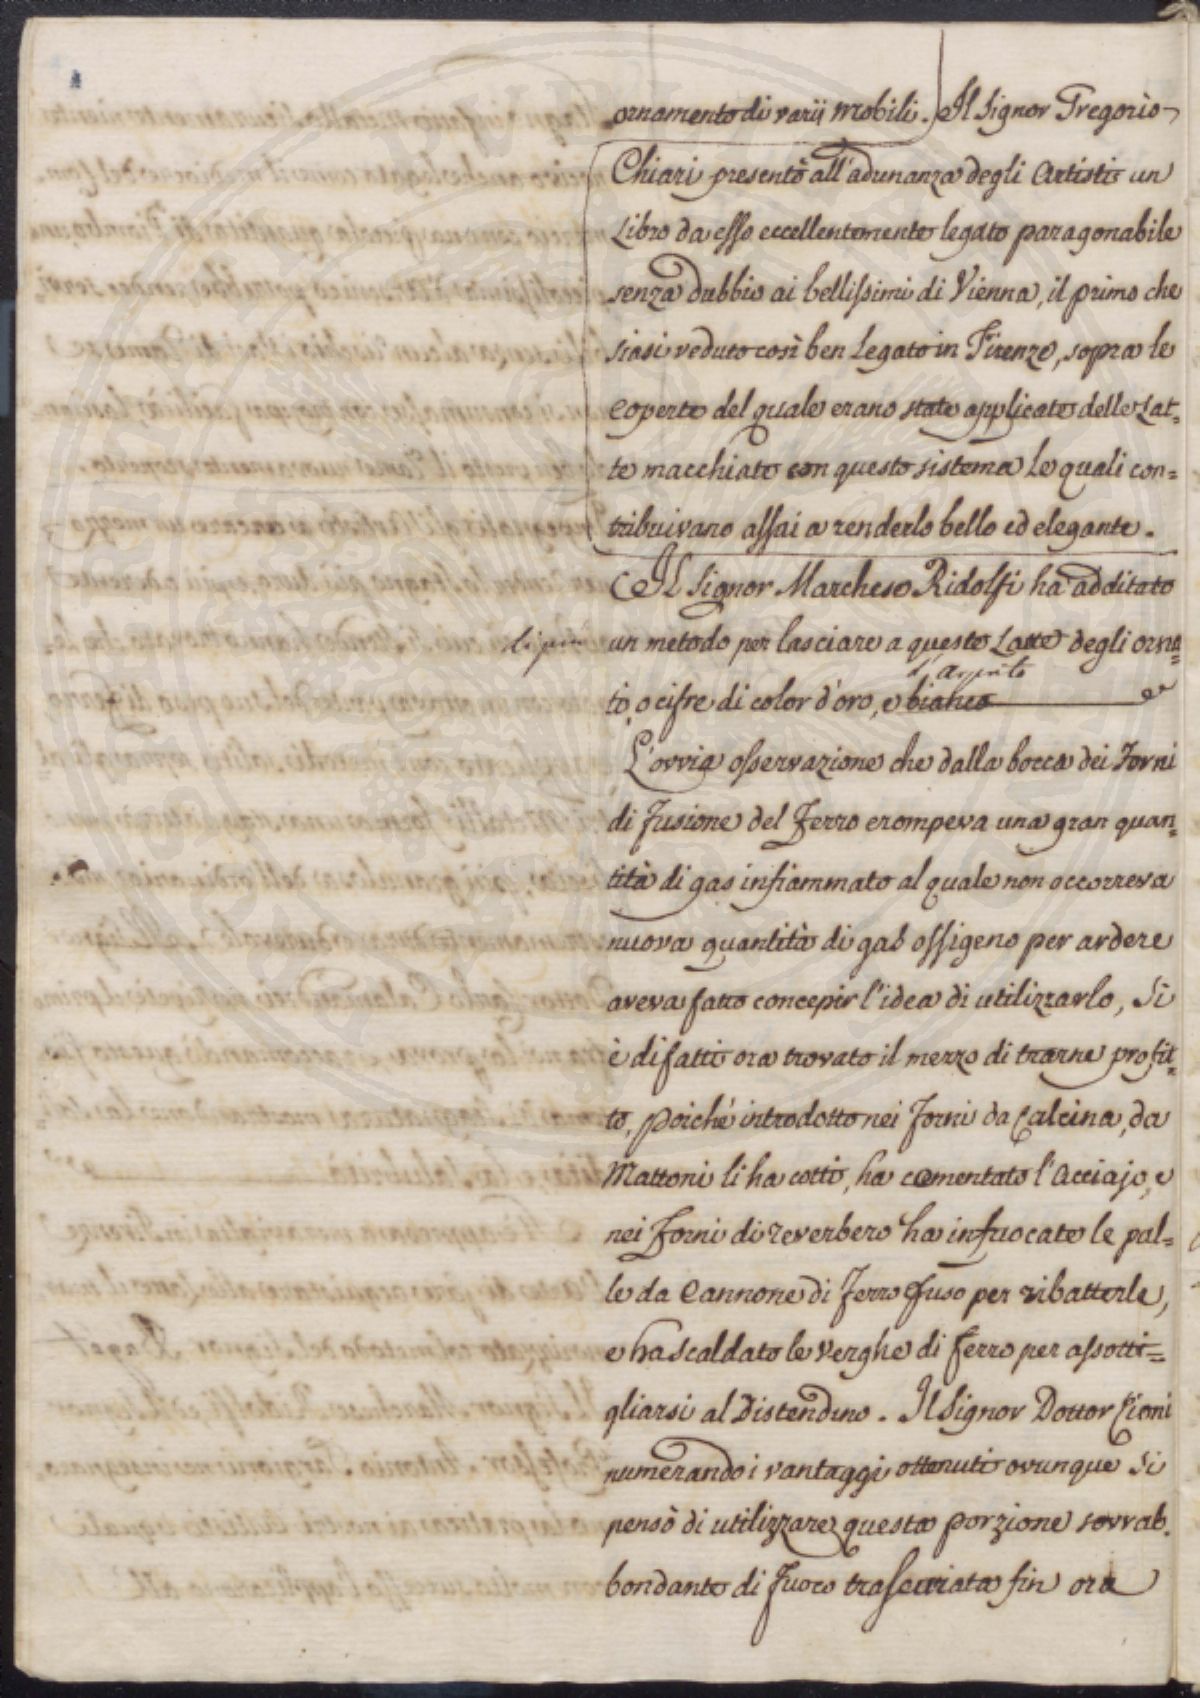 ornamento di varii mobili. Il Signor Gregorio
Chiari presentò all'adunanza degli Artisti un
Libro da esso eccellentemente legato paragonabile
senza dubbio ai bellissimi di Vienna, il primo che
siasi veduto così ben legato in Firenze, sopra le
coperte del quale erano state applicate delle Lat=
te macchiate con questo sistema le quali con=
tribuivano assai a renderlo bello ed elegante.
Il Signor Marchese Ridolfi ha additato
di più
un metodo per lasciare a queste Latte degli orna=
d'argento
ti, o cifre di color d'oro, e bianco
L'ovvia osservazione che dalla bocca dei Forni
di fusione del Ferro erompeva una gran quan=
tità di gas infiammato al quale non occorreva
nuova quantità di gas ossigeno per ardere
aveva fatto concepir l'idea di utilizzarlo, Si
è difatti ora trovato il mezzo di trarne profit=
to, poiché introdotto nei Forni da Calcina, da
Mattoni li ha cotti, ha cementato l'Acciajo, e
nei Forni di reverbero ha infuocate le pal=
le da Cannone di Ferro fuso per ribatterle,
e ha scaldato le verghe di ferro per assotti=
gliarsi al Distendino. Il Signor Dottor Cioni
numerando i vantaggi ottenuti ovunque si
pensò di utilizzare questa porzione sovrab=
bondante di fuoco trascurata fin ora